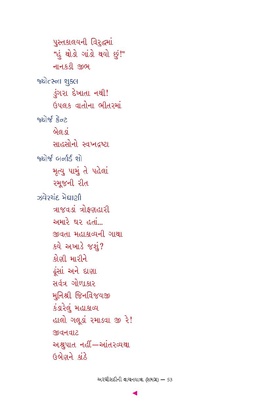 પુસ્તકાલયની વિરુદ્ધમાં
"હું થોડો ગાંડો થયો છું!"
નાનકડી જીભ
જ્યોત્સ્ના શુક્લ
ડુંગરા દેખાતા નથી!
ઉપલક વાતોના ભીતરમાં
જ્યોર્જ કેન્ટ
બેલડાં
સાહસોનો સ્વપ્નદ્રષ્ટા
જ્યોર્જ બર્નાર્ડ શો
મૃત્યુ પામું તે પહેલાં
રમૂજની રીત
ઝવેરચંદ મેઘાણી
ત્રાજવડાં ત્રોફણહારી
અમારે ઘર હતાં...
જીવતા મહાકાવ્યની ગાથા
કવે અખાડે જશું?
કોણી મારીને
ઢૂંસાં અને દાણા
સર્વત્ર ગોળાકાર
મુનિશ્રી જિનવિજયજી
કંડારેલું મહાકાવ્ય
હાલો ગલૂડાં રમાડવા જી રે!
જીવનવાટ
અશ્રુપાત નહીં—આંતરવ્યથા
ઉબેણને કાંઠે
અરધી સદીની વાચનયાત્રા (સમગ્ર) — 53